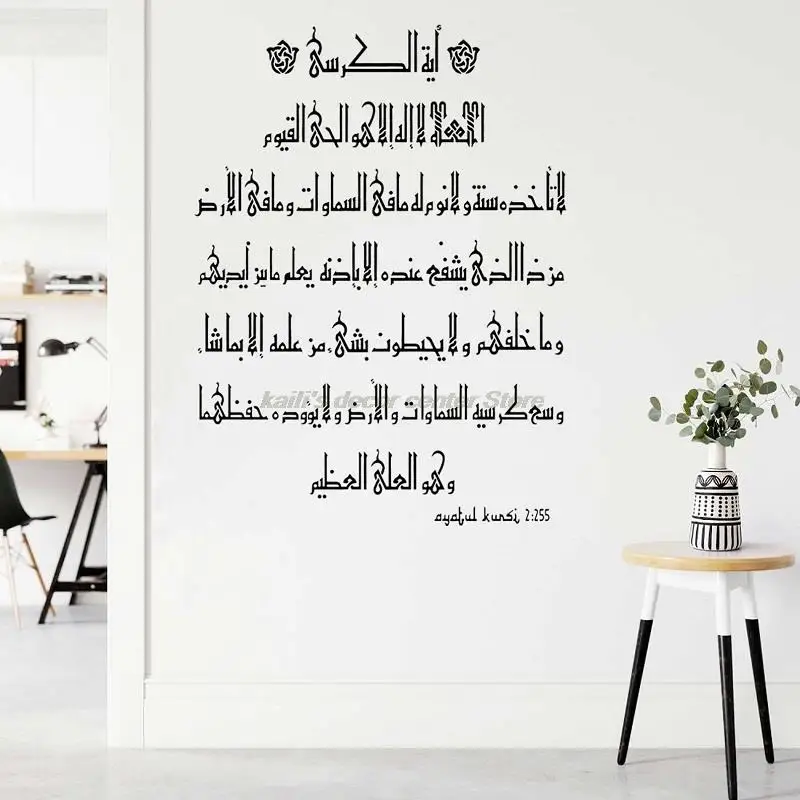 أية الكرسى
الله لا إله إلا هو الحى القيوم
لا تأخذه سنة ولا نوم له ما فى السماوات وما فى الأرض
من ذا الذى يشفع عنده إلا بإذنه يعلم ما بين أيديهم
وما خلفهم ولا يحيطون بشىء من علمه إلا بما شاء
وسع كرسيه السماوات والأرض ولا يؤوده حفظهما
kaili's decor center Store
وهو العلى العظيم
ayatul kursi 2:255